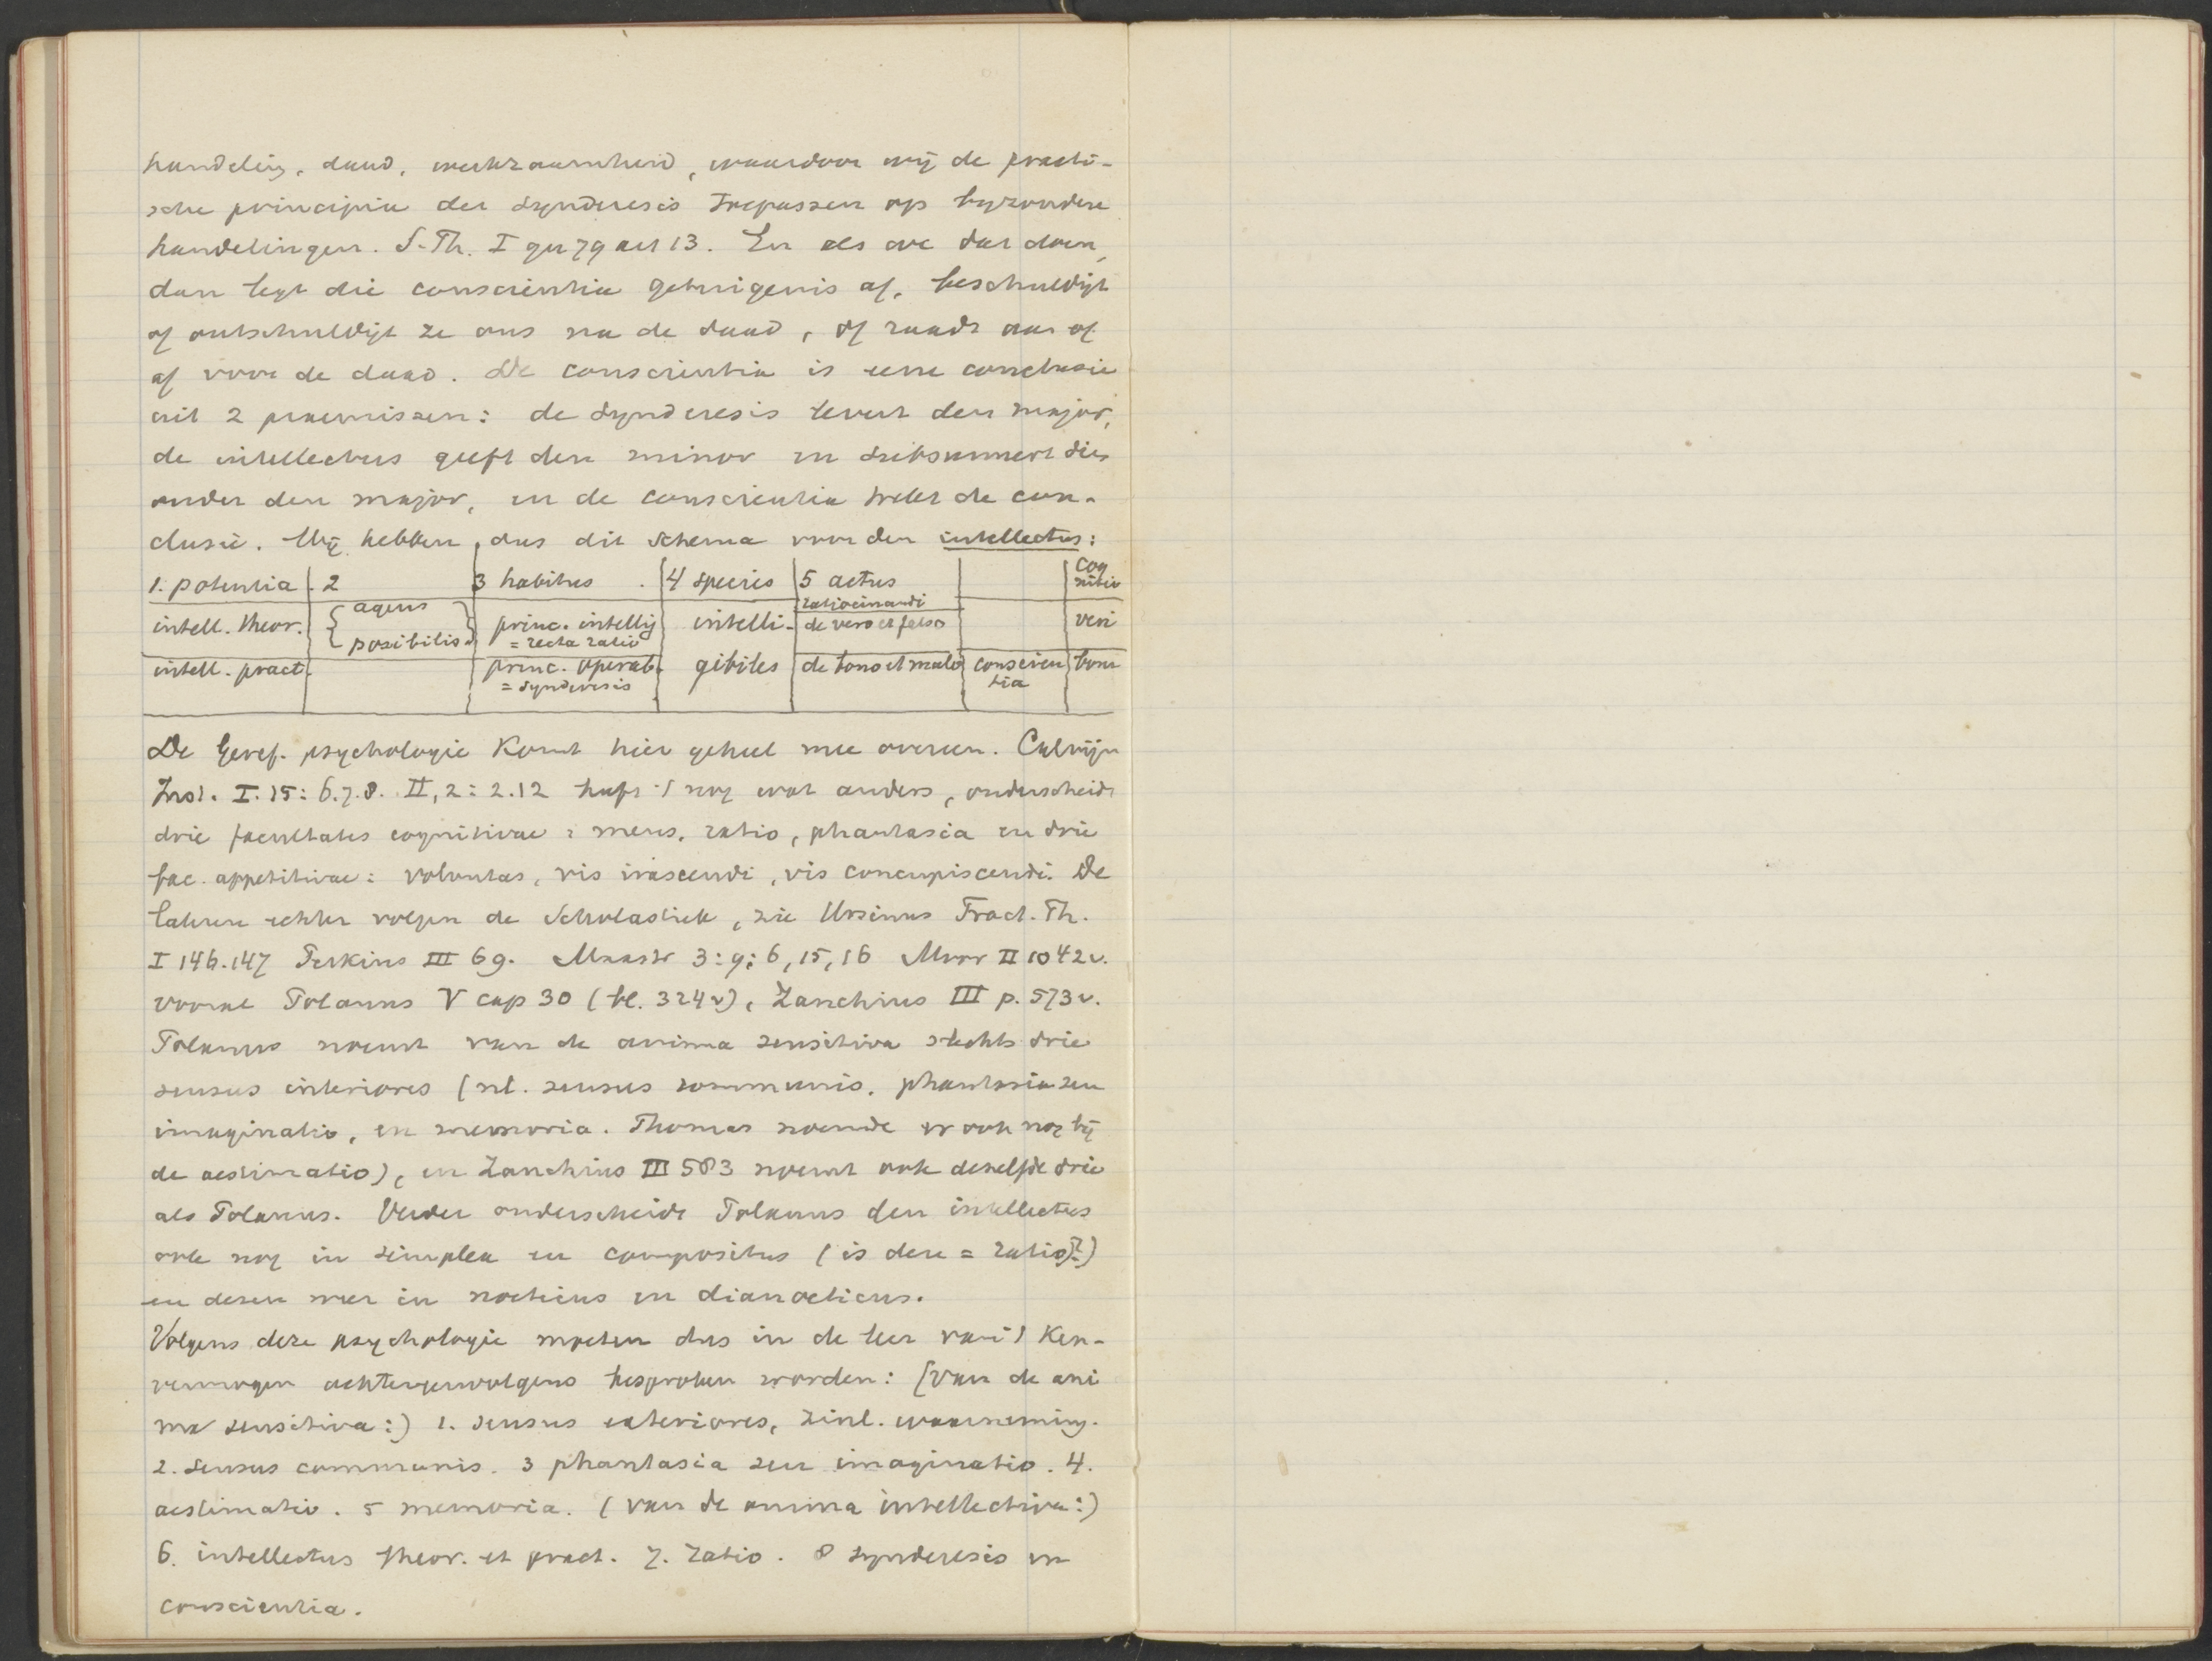 handeling, daad, werkzaamheid, waardoor wij de practi-
sche principia der synderesis toepassen op byzondere
handelingen. S. Th. I qu 79 art 13. En als we dat doen,
dan legt die conscientia getuigenis af, beschuldigt
of ontschuldigt ze ons na de daad, of raadt aan of
af voor de daad. De conscientia is eene conclusie
uit 2 praemissen: de synderesis levert den major,
de intellectus geeft den minor en subsumeert dien
onder den major, en de conscientia trekt de con-
clusie. Wij hebben dus dit schema voor den intellectus:
1. potentia 2 3 habitus 4 species 5 actus cog
nitio
ratiocinandi
intell. theor. agens princ. intellig intelli- de vero et falso veri
possibilis = recta ratio
intell. pract. princ. operab. gibiles de bono et malo conscien boni
= synderesis tia
De Geref. psychologie komt hier geheel mee overeen. Calvijn
Inst. I. 15: 6.7.8. II, 2: 2.12 heeft 't nog wat anders, onderscheidt
drie facultates cognitivae: mens, ratio, phantasia en drie
fac. appetitivae: voluntas, vis irascendi, vis concupiscendi. De
lateren echter volgen de Scholastiek, zie Ursinus Tract. Th.
I 146.147 Perkins III 69. Maastr 3:9:6,15,16 Moor II 1042v.
vooral Polanus V cap 30 (bl. 324v), Zanchius III p. 573v.
Polanus noemt van de anima sensitiva slechts drie
sensus interiores (nl. sensus communis, phantasia seu
imaginatio, en memoria. Thomas noemde er ook nog bij
de aestimatio), en Zanchius III 583 noemt ook dezelfde drie
als Polanus. Verder onderscheidt Polanus den intellectus
ook nog in simplex en compositus (is deze = ratio?)
en dezen weer in noeticus en dianoeticus.
Volgens deze psychologie moeten dus in de leer van 't Ken-
vermogen achtereenvolgens besproken worden: (van de ani
ma sensitiva:) 1. sensus exteriores, zinl. waarneming.
2. sensus communis. 3 phantasia seu imaginatio. 4.
aestimatio. 5 memoria. (van de anima intellectiva:)
6. intellectus theor. et pract. 7. ratio. 8 synderesis en
conscientia.